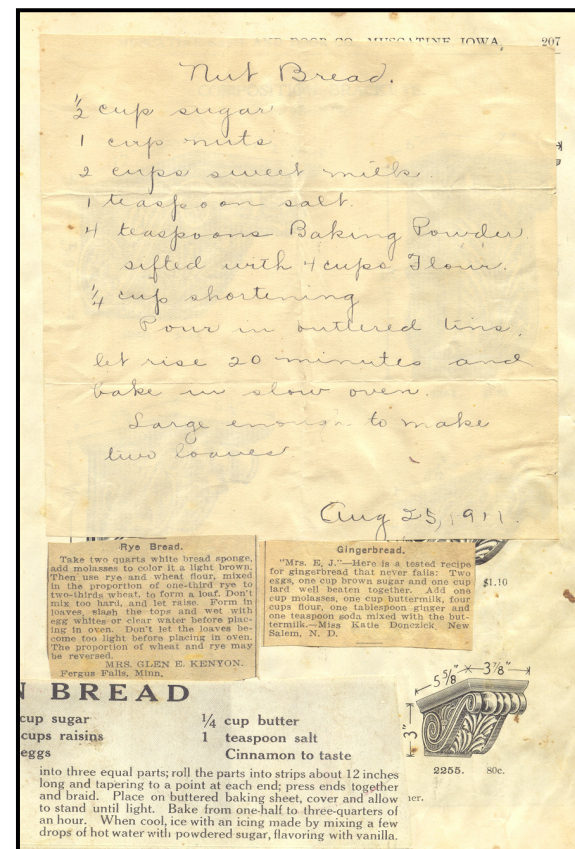 DOOR CO., MUSCATINE, IOWA. 207
Nut Bread.
½ cup sugar
1 cup nuts
2 cups sweet milk.
1 teaspoon salt.
4 teaspoons Baking Powder
sifted with 4 cups Flour.
¼ cup shortening
Pour in buttered tins,
let rise 20 minutes and
bake in slow oven.
Large enough to make
two loaves.
Aug 25, 1911.
Rye Bread.
Take two quarts white bread sponge,
add molasses to color it a light brown.
Then use rye and wheat flour, mixed
in the proportion of one-third rye to
two-thirds wheat, to form a loaf. Don't
mix too hard, and let raise. Form in
loaves, slash the tops and wet with
egg whites or clear water before plac-
ing in oven. Don't let the loaves be-
come too light before placing in oven.
The proportion of wheat and rye may
be reversed.
MRS. GLEN E. KENYON.
Fergus Falls, Minn.
Gingerbread.
"Mrs. E. J."—Here is a tested recipe
for gingerbread that never fails: Two
eggs, one cup brown sugar and one cup
lard well beaten together. Add one
cup molasses, one cup buttermilk, four
cups flour, one tablespoon ginger and
one teaspoon soda mixed with the but-
termilk.—Miss Katie Donczick, New
Salem, N. D.
$1.10
N BREAD
cup sugar ¼ cup butter
cups raisins 1 teaspoon salt
eggs Cinnamon to taste
into three equal parts; roll the parts into strips about 12 inches
long and tapering to a point at each end; press ends together
and braid. Place on buttered baking sheet, cover and allow
to stand until light. Bake from one-half to three-quarters of
an hour. When cool, ice with an icing made by mixing a few
drops of hot water with powdered sugar, flavoring with vanilla.
5 5/8" 3 7/8"
3"
2255. 80c.
ner.